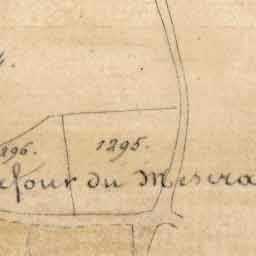 296.
1295.
efour du Misera